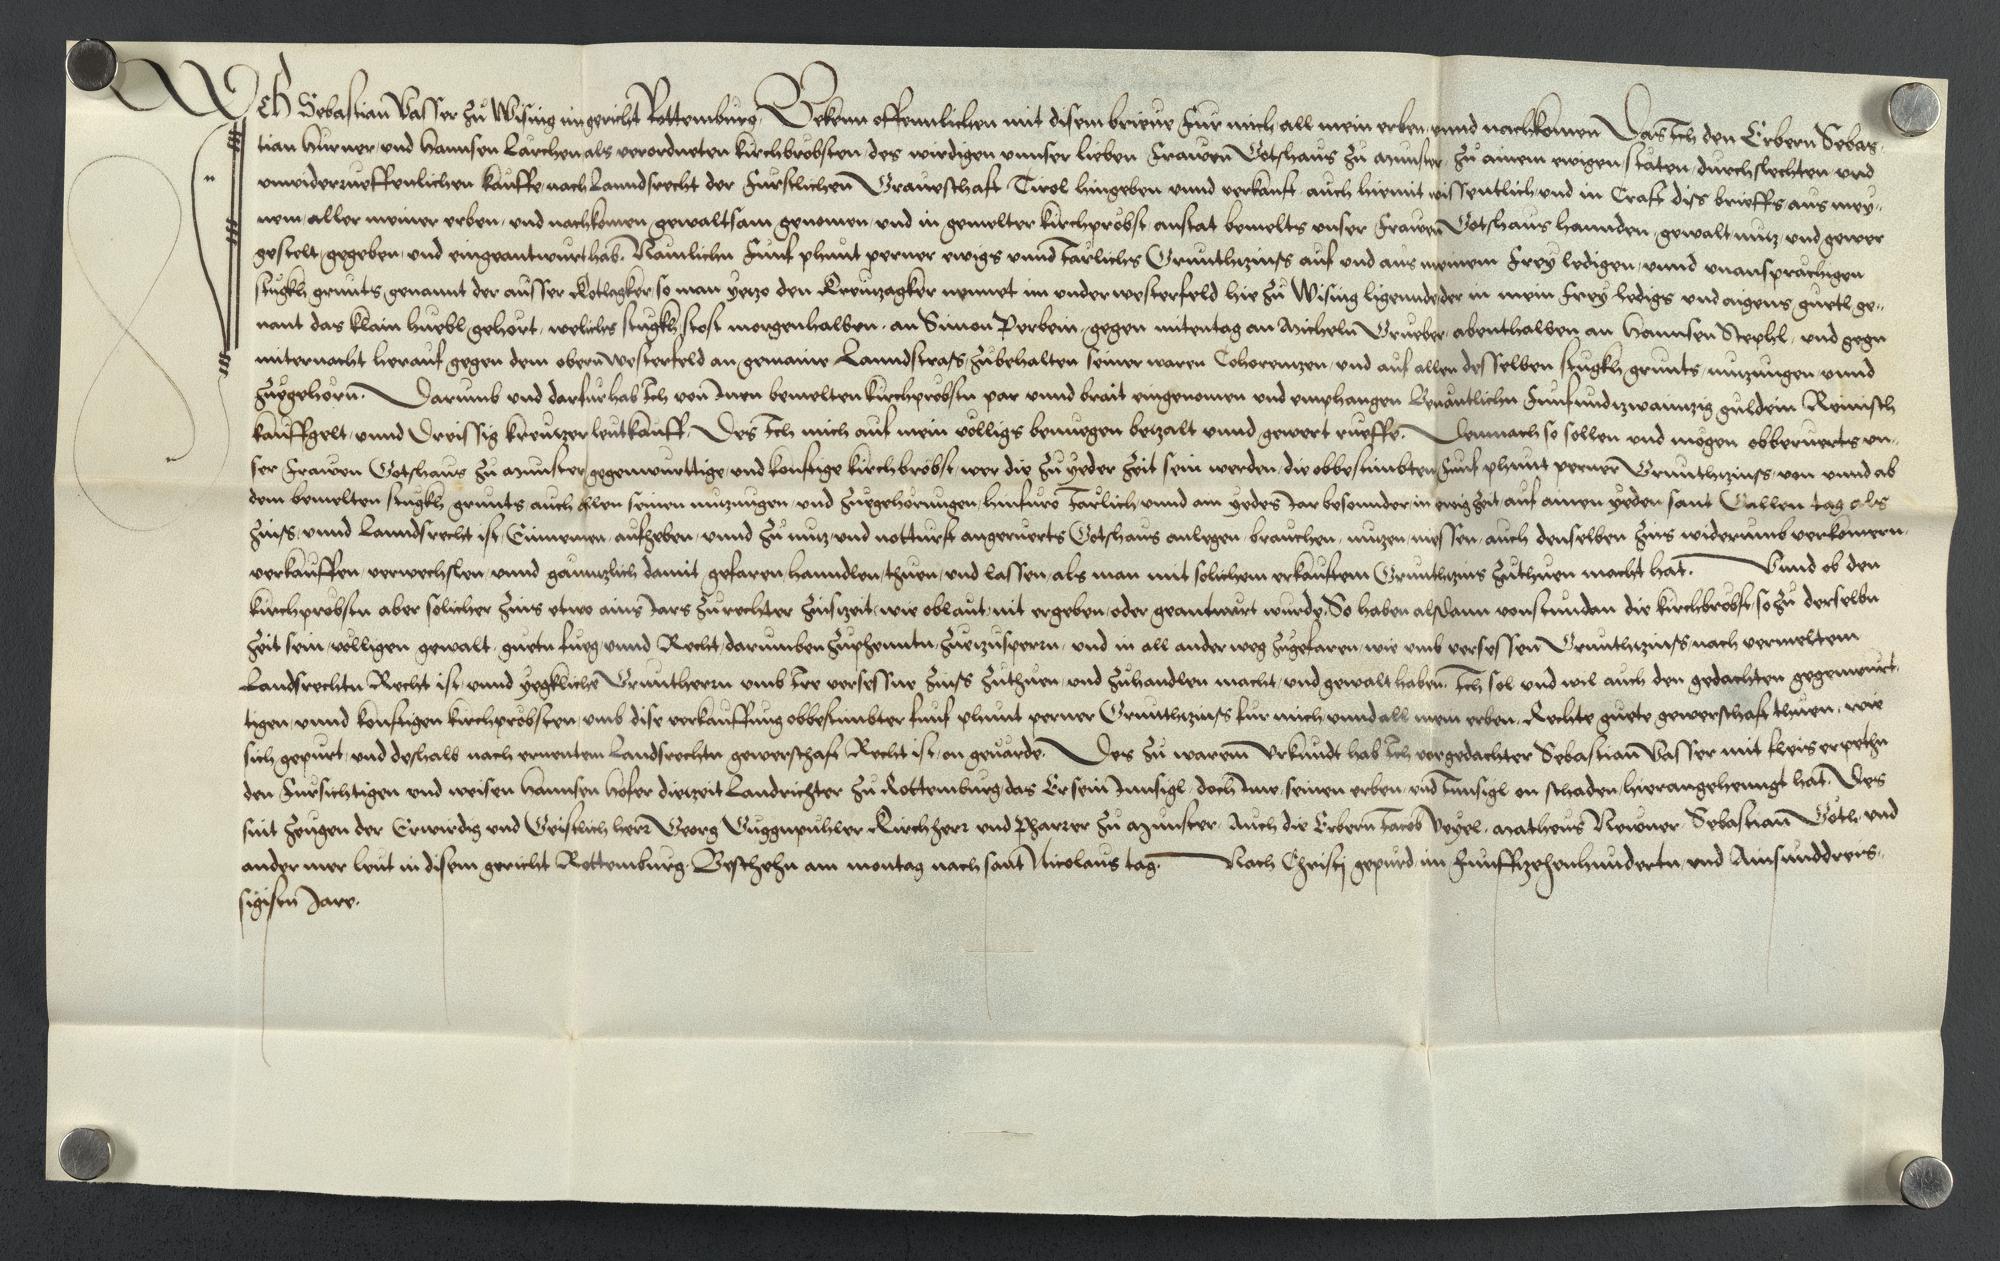 Ich Sebastian Vasser zu Wising im gericht Rottemburg, Bekenn offennlichen mit disem brieue Fur mich, all mein erben, unnd nachkomen Das Ich den Erbern Sebas-
tian Hurner, und Hannsen Larchen, als verordneten kirchbrobsten, des wirdigen unnser lieben Frawen Gotshaus zu Munster, zu ainem ewigen, stäten, durchslechten, und
unwiderrueffenlichen kauffe, nach Lanndsrecht der Fürstlichen Graueschaft Tirol hingeben unnd verkauft, auch hiemit wissentlich, und in Craft diss brieffs, aus mey-
nem, aller meiner erben, und nachkomen, gewaltsam genomen, und in gemelter kirchpröbst, anstat bemelts unser Frawen Gotshaus hannden, gewalt, nutz, und gewer
gestelt, gegeben, und eingeantwurt hab. Nämlichn Funf phunt perner ewigs unnd Järlichs Grunthtzinss auf und aus meinem Frey ledigen, unnd unansprächigen
stugkh grunts, genannt der ausser Kotlagker, so man yetzo den Kreutzagker nennet im underwesterfeld hie zu Wising ligennde, der in mein Frey ledigs und aigens guetl ge-
nant das klain huebl, gehört, weliches stugkh, stost morgenhalben, an Simon Perbein, gegen mitentag an Micheln Grueber, abenthalben an Hannsen Stephl, und gegn
miternacht herauf, gegen dem obern westerfeld an gemaine Lanndstrass, zubehalten seiner waren Cohorentzen, und auf allen desselben stugkh grunts, nutzungen, unnd
zuegehorn. Darumb und darfur hab Ich von Inen bemelten kirchpröbstn par unnd brait eingenomen und emphangen Benäntlichn Funfundtzwaintzig guldein Reinisch
kauffgelt, unnd Dreissig kreutzer leutkauff, Des Ich mich auf mein völligs benuegen betzalt unnd gewert rueffe. Demnach so sollen und mögen obberuerts un-
ser Frawen Gotshaus zu Munster, gegenwurttige, und konftige kirchbröbst, wer die zu yeder zeit sein werden, die obbestimbten Funf phunt perner Grunthtzinss, von unnd ab
dem bemelten stugkh grunts, auch allen seinen nutzungen, und zuegehörungen, hinfuro Järlich, unnd am yedes Jar besonnder, in ewig zeit, auf ainen yeden sant Gallen tag als
zinss, unnd Lanndsrecht ist, Einnemen, aufheben, unnd zu nutz, und notturft angeruerts Gotshaus anlegen, brauchen, nutzen, niessen, auch denselben zins widerumb verkomern,
verkauffen, verwechslen, unnd gänntzlich damit, gefaren, hanndlen, thuen, und lassen, als man mit solichem erkauftem Grunthtzins zuthuen macht hat. Unnd ob den
kirchpröbstn aber solicher zins etwo ains Jars zu rechter zinszeit, wie oblaut, nit ergeben, oder geantwurt wurde, So haben alsdann vonstundan die kirchbröbst, so zu derselbn
zeit sein, völligen gewalt, guetn fueg, unnd Recht, darumben zuphenntn, zuetzusperrn, und in all ander weg zugefaren, wie umb versessen Grunthtzinss, nach vermeltem
Landsrechtn Recht ist, unnd yegkliche Gruntherrn umb Ire versessne zinss zuthuen, und zuhandlen macht, und gewalt haben. Ich sol und wil auch den gedachten gegenwurt-
tigen, unnd konftigen kirchpröbsten, umb dise verkauffung obbestimbter funf phunt perner Grunthtzinss fur mich, unnd all mein erben, Rechte guete gewerschaft thuen, wie
sich gepurt, und deshalb nach ernentem Landsrechtn gewerschaft Recht ist, on geuärde. Des zu warem Urkundt hab Ich vorgedachter Sebastian Vasser mit fleis erpethn
den Fursichtigen und weisen Hannsen Hofer dietzeit Landrichter zu Rottemburg, das Er sein Innsigl, doch Ime, seinen erben, und Innsigl on schaden, hierangehenngt hat. Des
sint zeugen der Erwirdig und Geistlich herr Georg Guggnpuhler Kirchherr und Pharrer zu Munster, Auch die Erbern Jacob Veyel, Matheus Newner, Sebastian Götl, und
ander mer leut in disem gericht Rottemburg. Beschehn am montag nach sant Nicolaus tag. Nach Christj gepurd, im Funfftzehenhundertn, und Ainsunddreis-
sigistn Jare.